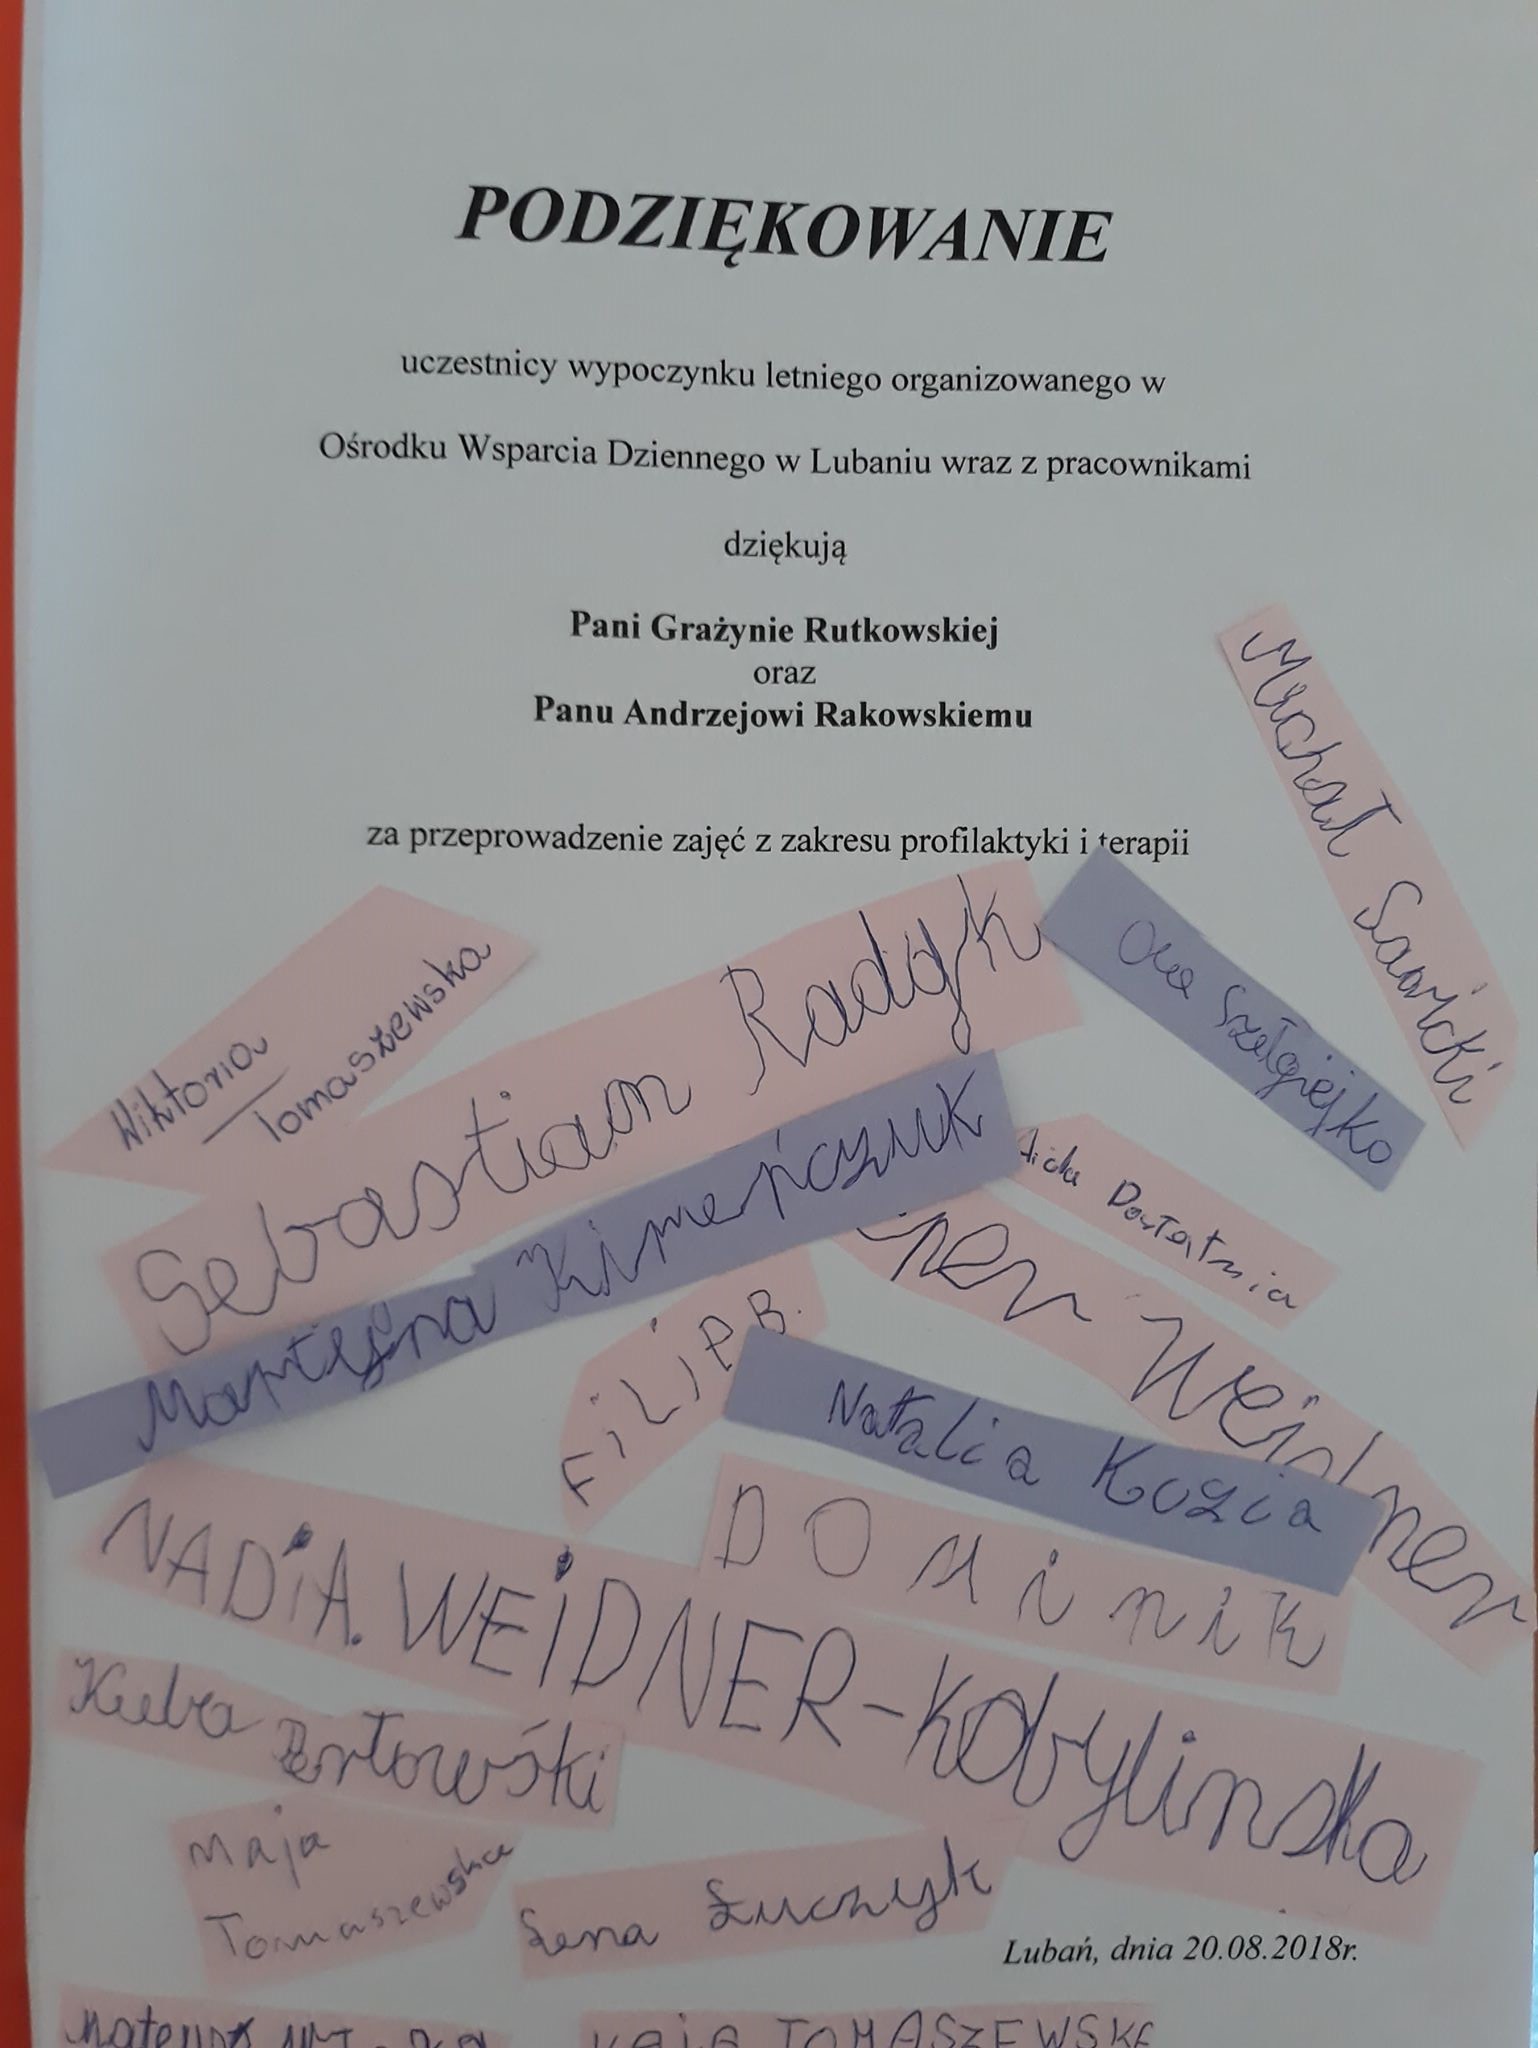 PODZIĘKOWANIE
uczestnicy wypoczynku letniego organizowanego w
Ośrodku Wsparcia Dziennego w Lubaniu wraz z pracownikami
dziękują
Pani Grażynie Rutkowskiej
oraz
Panu Andrzejowi Rakowskiemu
za przeprowadzenie zajęć z zakresu profilaktyki i terapii
Michał Sawicki
Szełgiejko
Wiktoria
Tomaszewska
Sebastian Radyk
Martyna Kimeńczuk
FiLiP B.
Weidner
Natalia Kozia
DOMiniK
NADiA. WEiDNER-Kobylinska
Kuba
Maja
Tomaszewska
Lena Łuczyk
Lubań, dnia 20.08.2018r.
KAJA TOMASZEWSKA